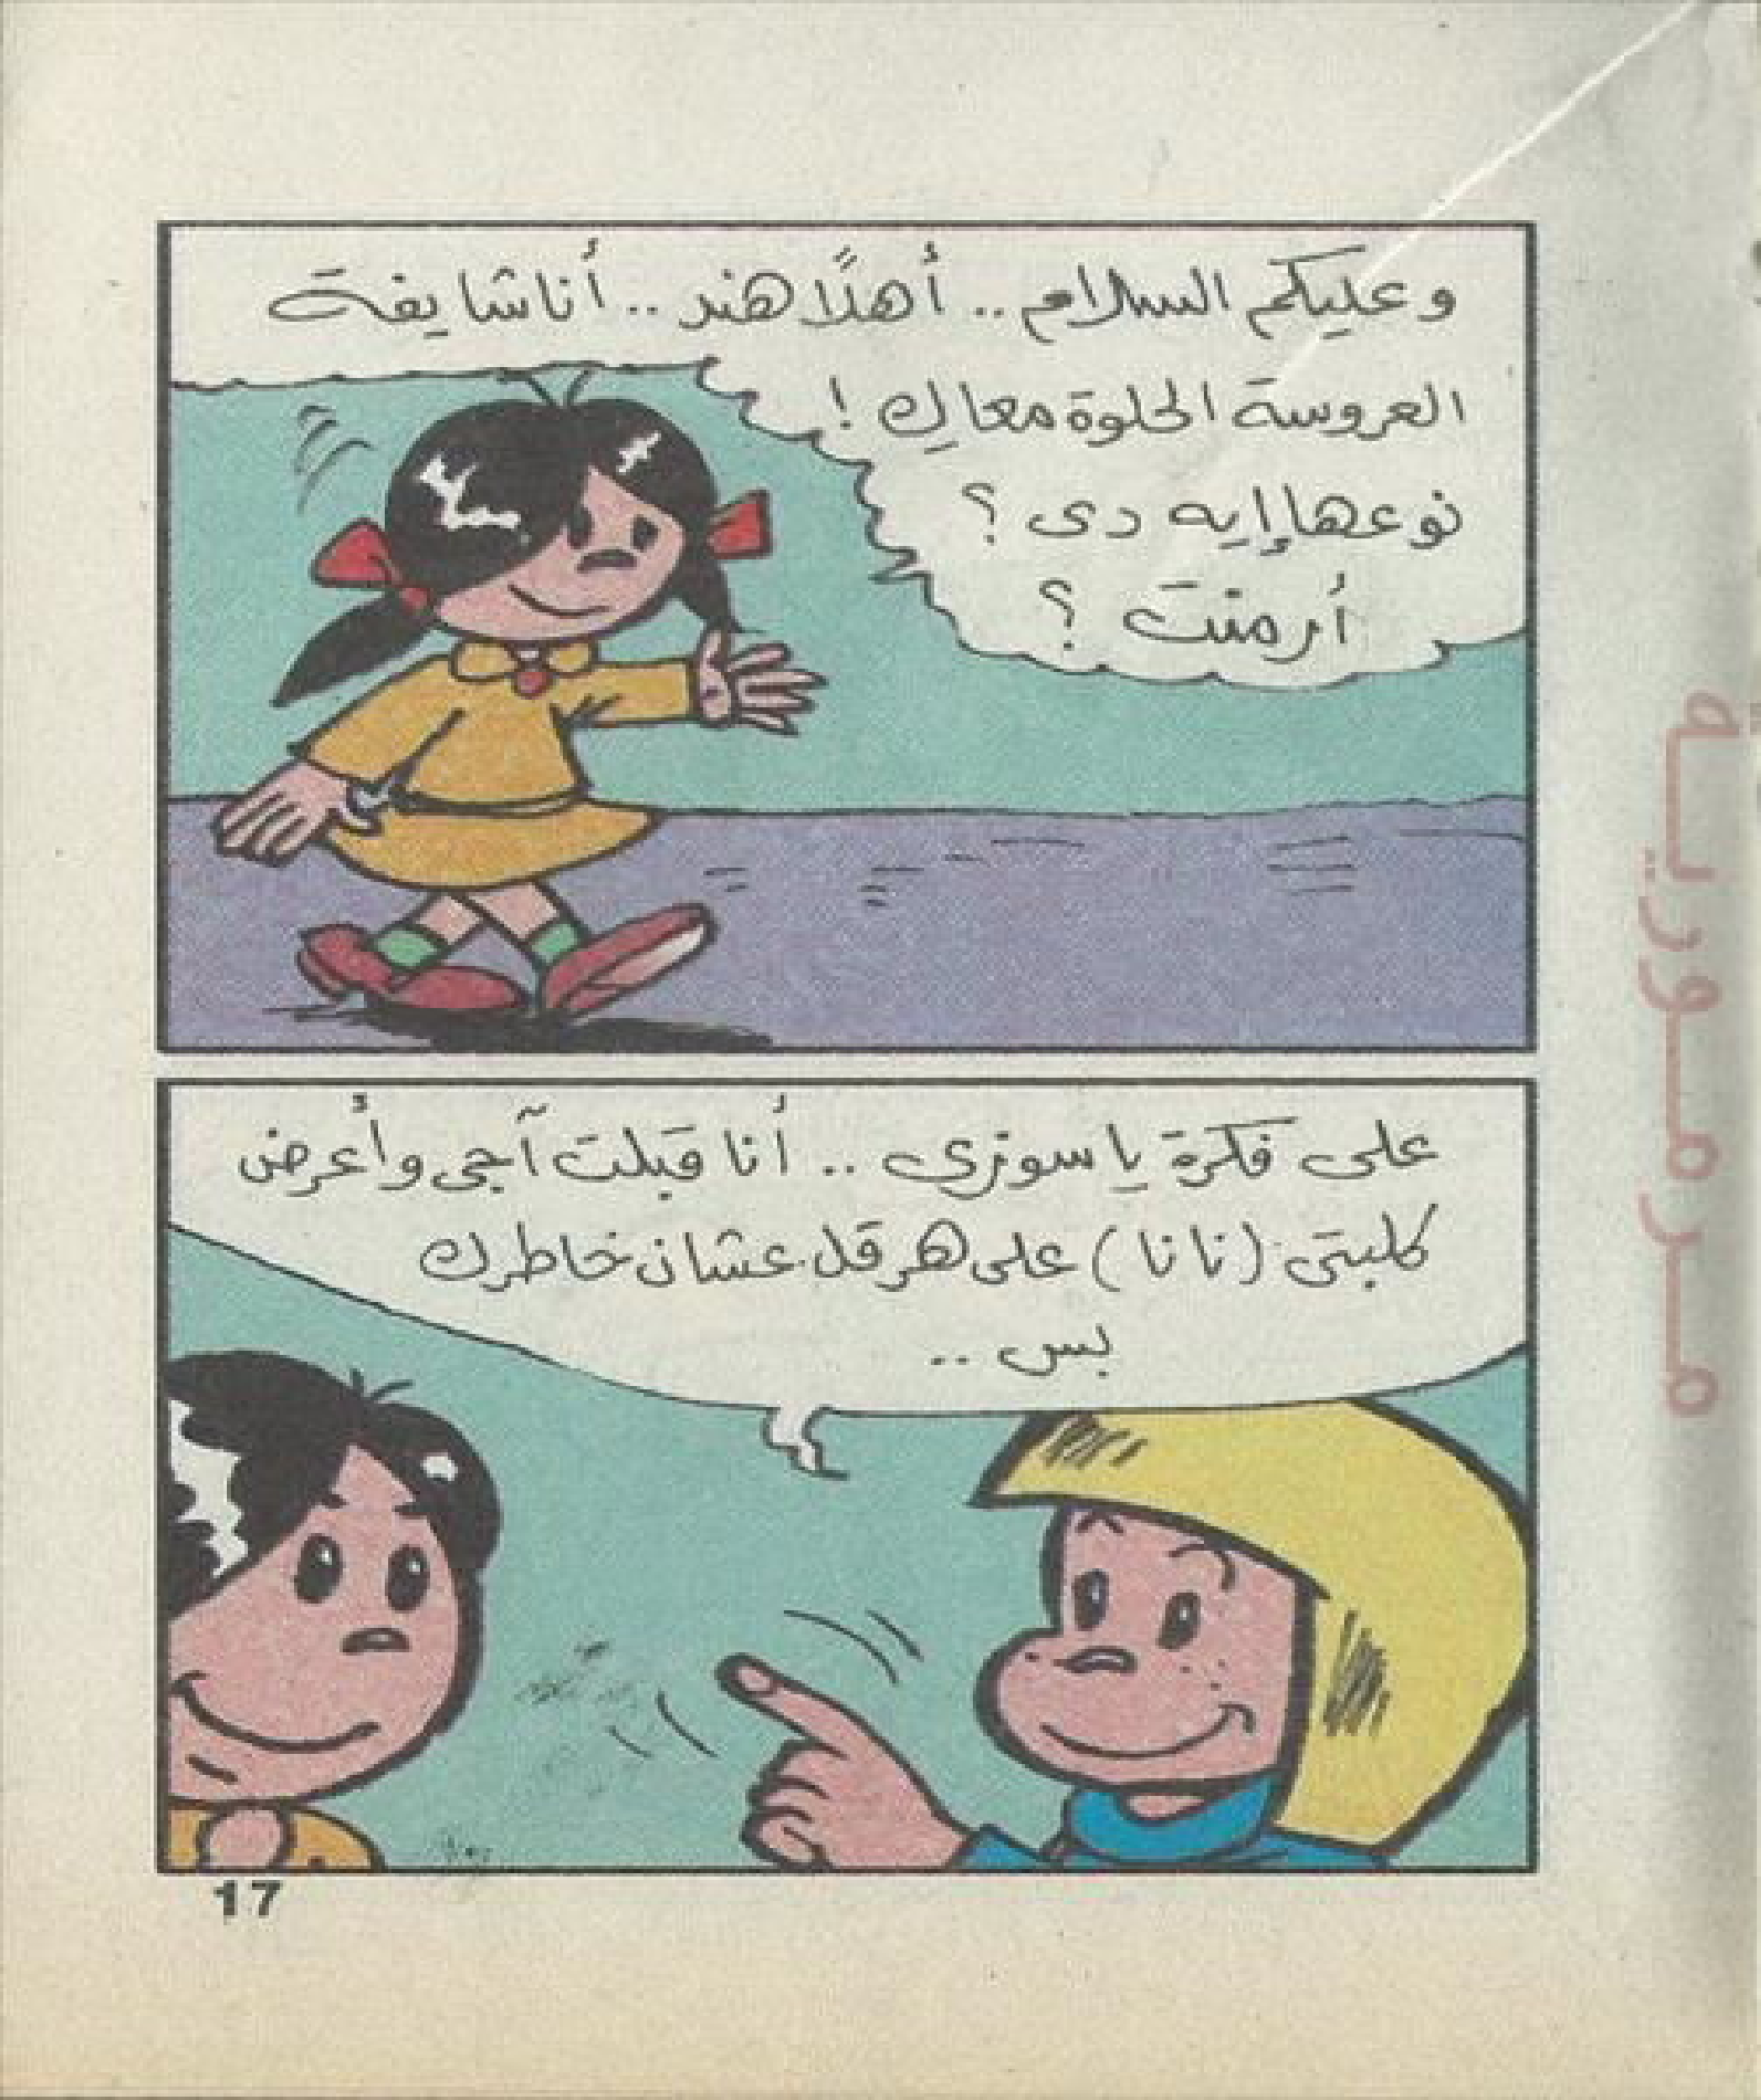 وعليكم السلام .. أهلًا هند .. أنا شايفة
العروسة الحلوة معاكِ !
نوعها إيه دى ؟
أرمنت ؟
على فكرة يا سوزى .. أنا قبلت آجى وأعرض
كلبتى (نانا) على هرقل عشان خاطرك
بس ..
17
مرمورية